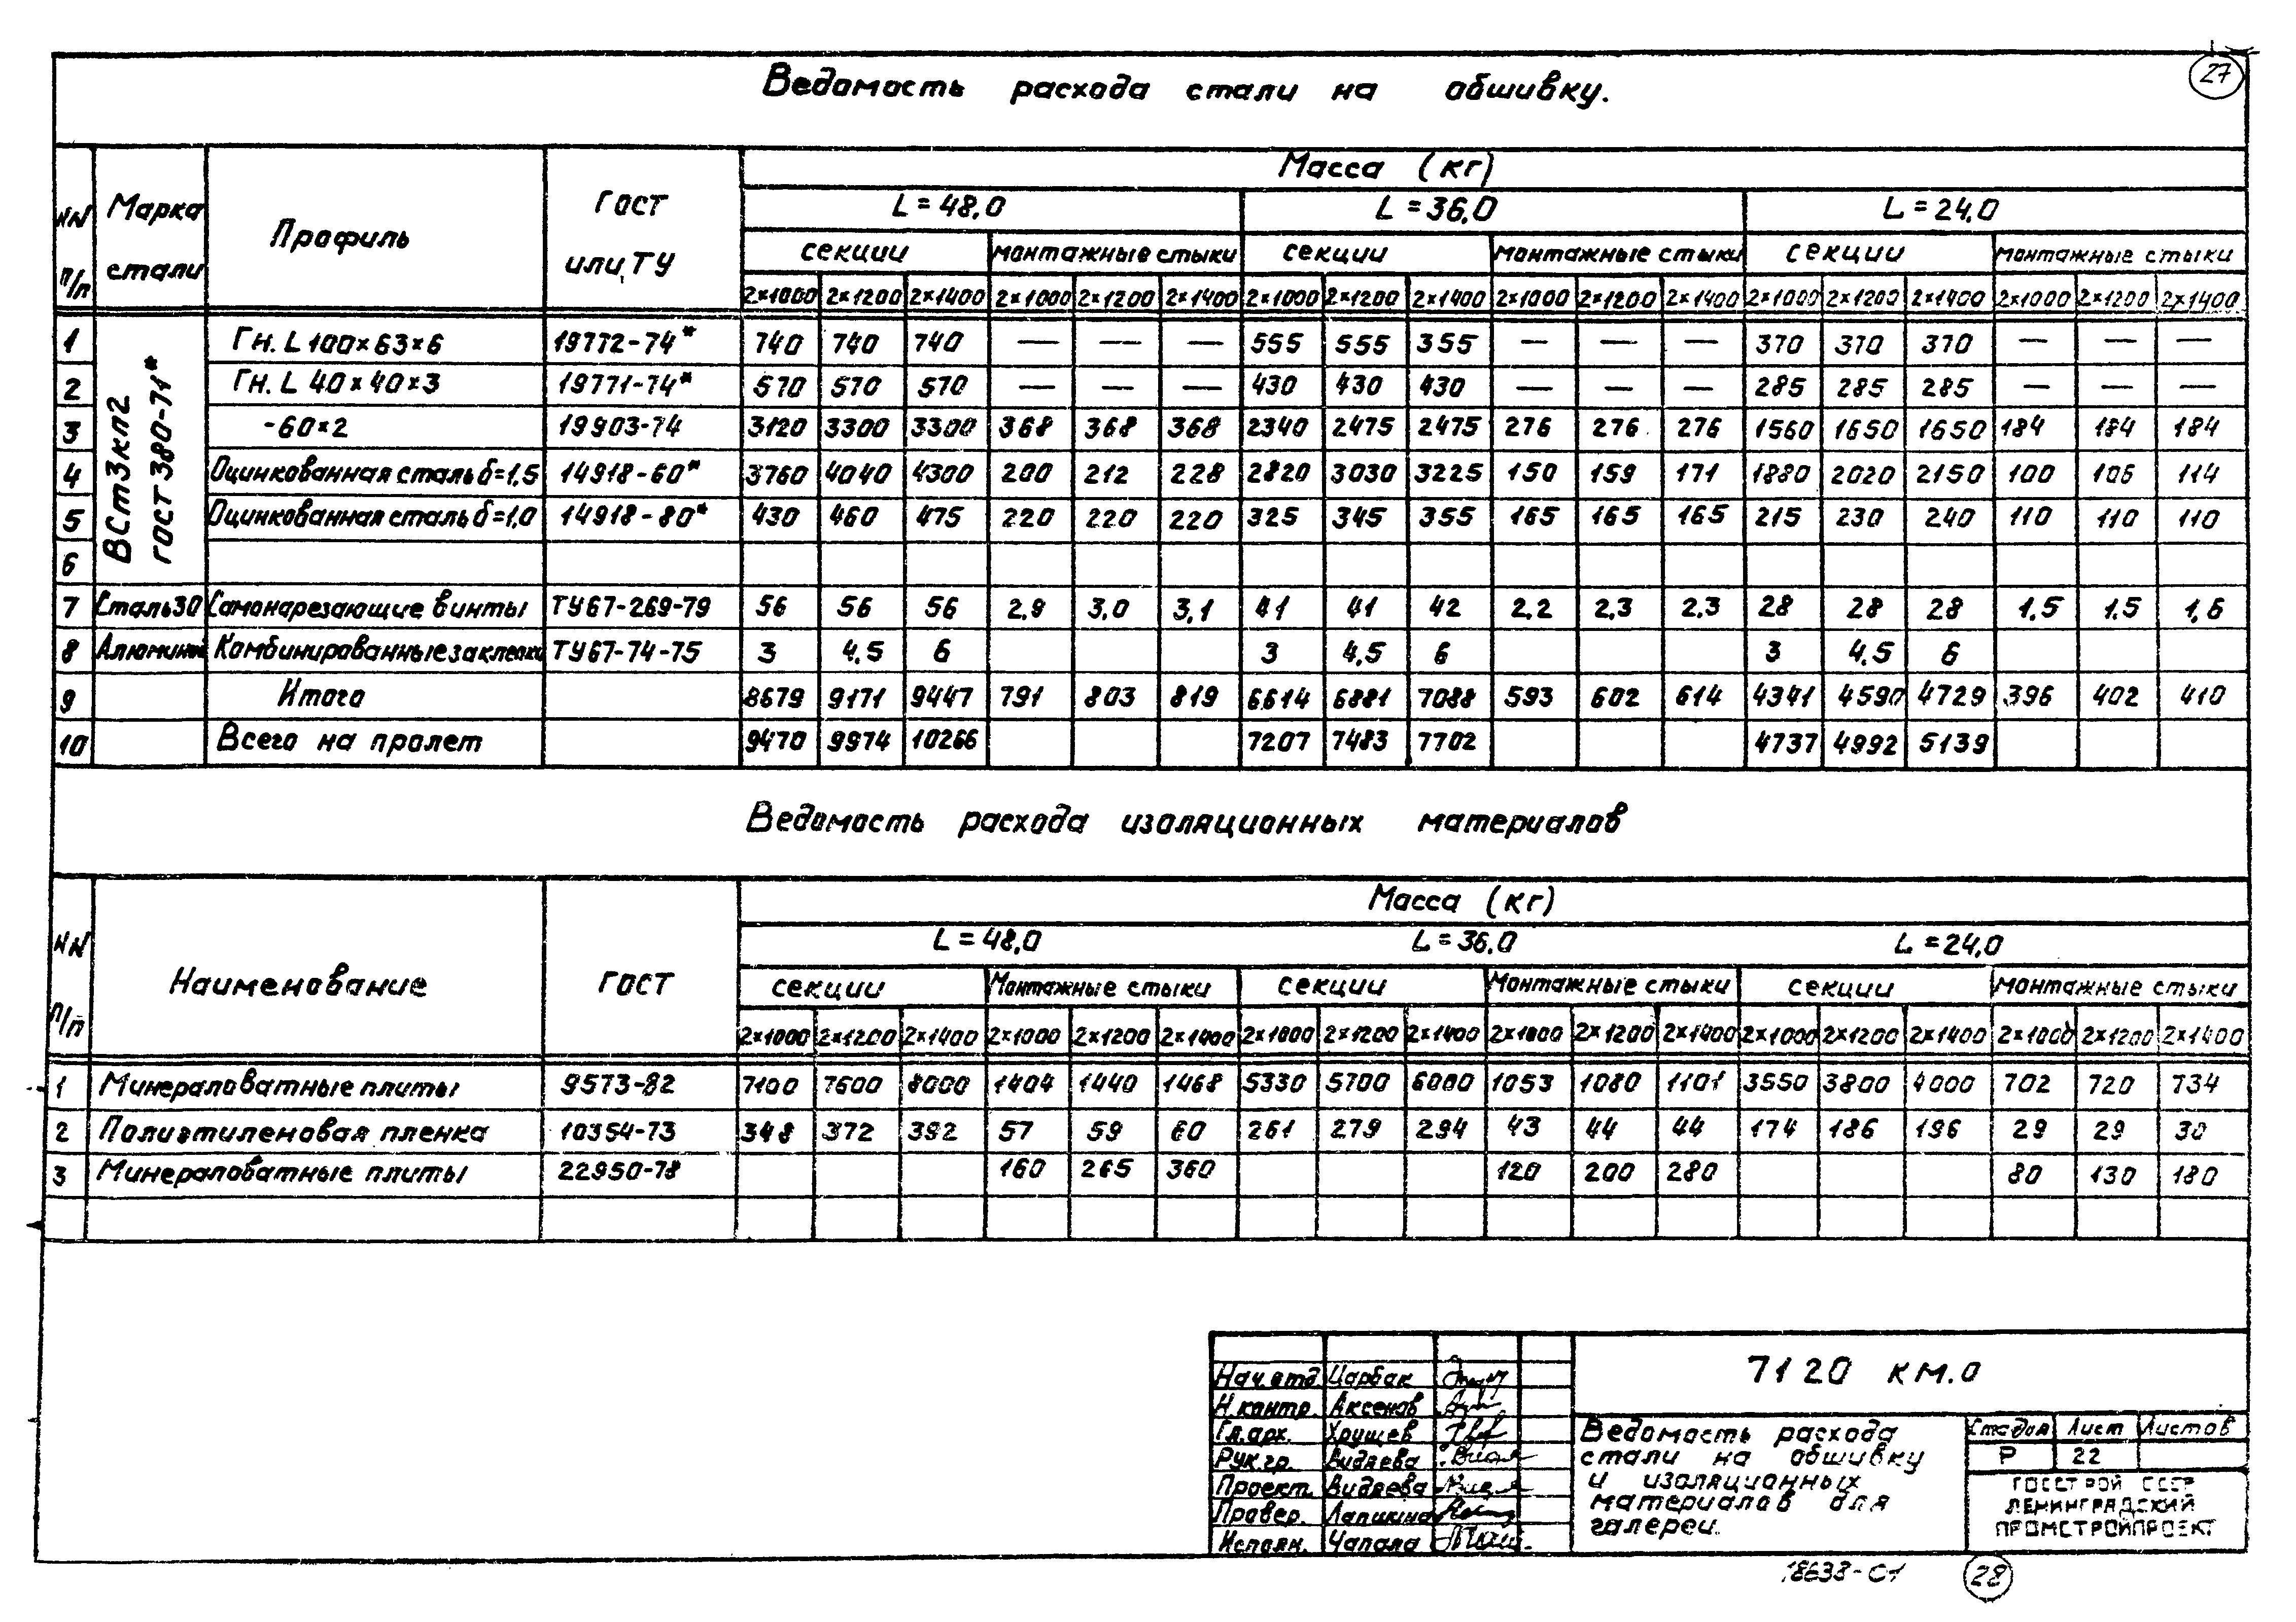 27
Ведомость расхода стали на обшивку.
NN п/п Марка стали Профиль ГОСТ или ТУ Масса (кг)
L=48,0 L=36,0 L=24,0
секции монтажные стыки секции монтажные стыки секции монтажные стыки
2×1000 2×1200 2×1400 2×1000 2×1200 2×1400 2×1000 2×1200 2×1400 2×1000 2×1200 2×1400 2×1000 2×1200 2×1400 2×1000 2×1200 2×1400
ВСт3кп2 ГОСТ 380-71*
1 Гн. L 100×63×6 19772-74* 740 740 740 — — — 555 555 355 — — — 370 370 370 — — —
2 Гн. L 40×40×3 19771-74* 570 570 570 — — — 430 430 430 — — — 285 285 285 — — —
3 -60×2 19903-74 3120 3300 3300 368 368 368 2340 2475 2475 276 276 276 1560 1650 1650 184 184 184
4 Оцинкованная сталь δ=1,5 14918-60* 3760 4040 4300 200 212 228 2820 3030 3225 150 159 171 1880 2020 2150 100 106 114
5 Оцинкованная сталь δ=1,0 14918-80* 430 460 475 220 220 220 325 345 355 165 165 165 215 230 240 110 110 110
6
7 Сталь30 Самонарезающие винты ТУ67-269-79 56 56 56 2,9 3,0 3,1 41 41 42 2,2 2,3 2,3 28 28 28 1,5 1,5 1,6
8 Алюминий Комбинированные заклепки ТУ67-74-75 3 4,5 6 3 4,5 6 3 4,5 6
9 Итого 8679 9171 9447 791 803 819 6614 6881 7088 593 602 614 4341 4590 4729 396 402 410
10 Всего на пролет 9470 9974 10266 7207 7483 7702 4737 4992 5139
Ведомость расхода изоляционных материалов
NN п/п Наименование ГОСТ Масса (кг)
L=48,0 L=36,0 L=24,0
секции Монтажные стыки секции Монтажные стыки секции монтажные стыки
2×1000 2×1200 2×1400 2×1000 2×1200 2×1400 2×1000 2×1200 2×1400 2×1000 2×1200 2×1400 2×1000 2×1200 2×1400 2×1000 2×1200 2×1400
1 Минераловатные плиты 9573-82 7100 7600 8000 1404 1440 1468 5330 5700 6000 1053 1080 1101 3550 3800 4000 702 720 734
2 Полиэтиленовая пленка 10354-73 348 372 392 57 59 60 261 279 294 43 44 44 174 186 196 29 29 30
3 Минераловатные плиты 22950-78 160 265 360 120 200 280 80 130 180
Нач.отд. Царбак
Н.контр. Аксенов
Гл.арх. Хрущев
Рук.гр. Видяева
Проект. Видяева
Провер. Лапшина
Исполн. Чапала
7120 КМ.0
Ведомость расхода
стали на обшивку
и изоляционных
материалов для
галереи.
Стадия Лист Листов
Р 22
ГОССТРОЙ СССР
ЛЕНИНГРАДСКИЙ
ПРОМСТРОЙПРОЕКТ
18638-01 28